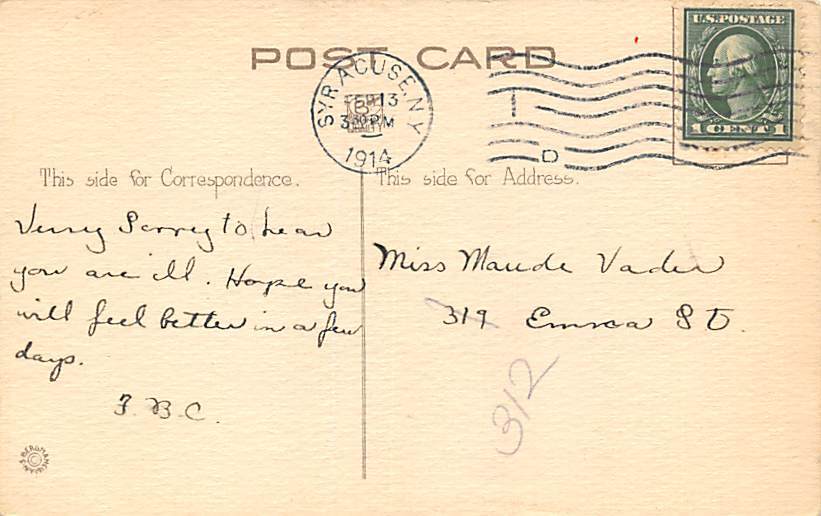 POST CARD
U.S. POSTAGE
1 CENT 1
SYRACUSE, N.Y.
FEB 13
3 30 PM
1914
D
This side for Correspondence.
This side for Address.
Verry Sorry to hear
you are ill. Hope you
will feel better in a few
days.
F. B. C.
Miss Maude Vader
319 Emma St.
312